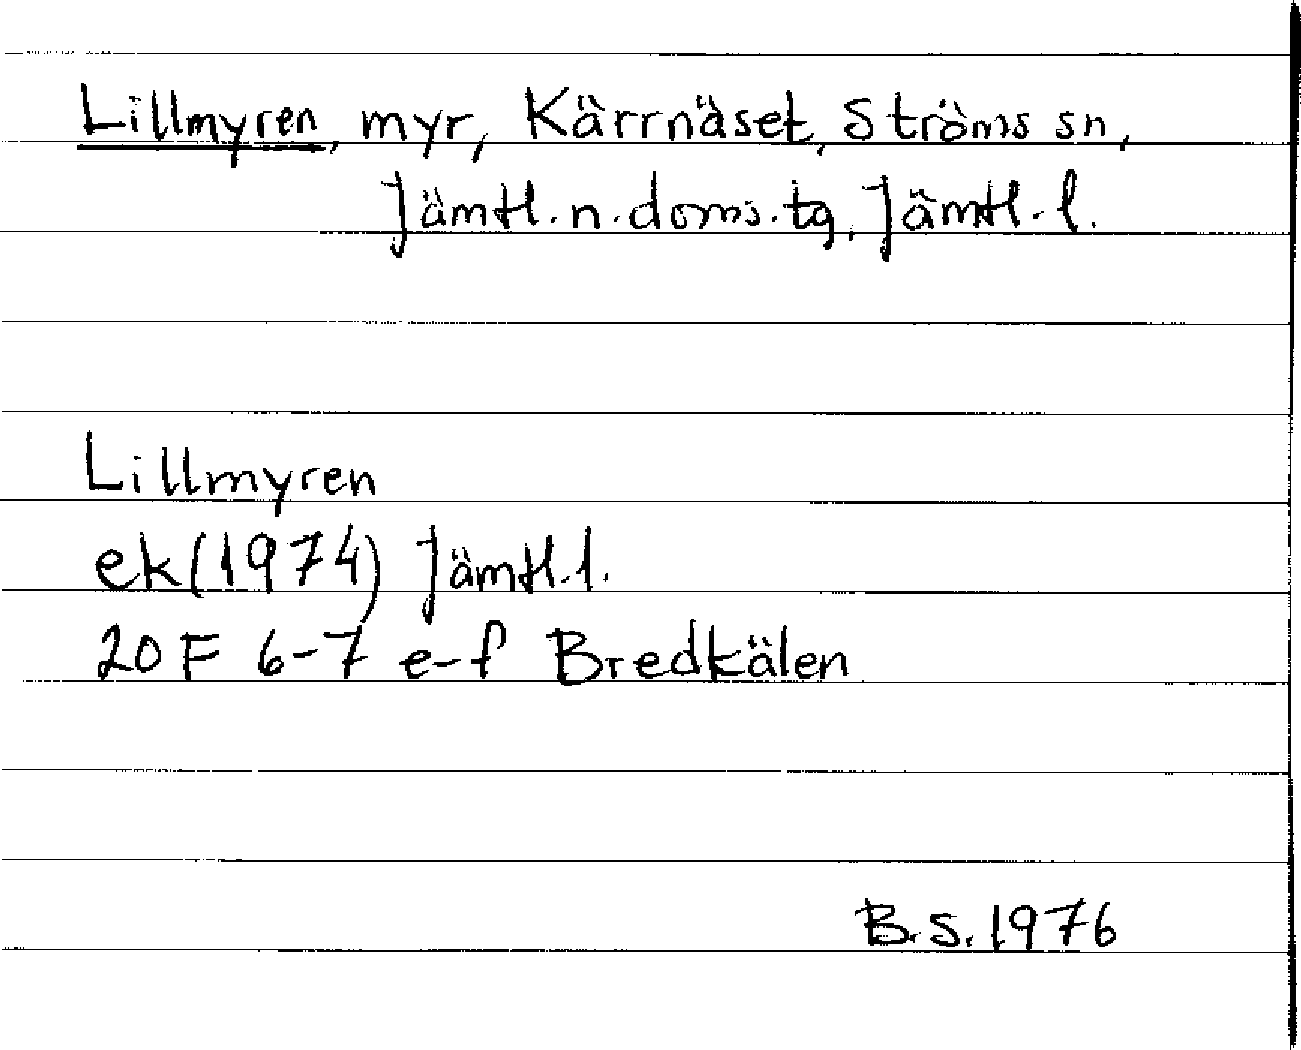 Lillmyren, myr, Kärrnäset, Ströms sn,
Jämtl. n. doms. tg, Jämtl. l.
Lillmyren
ek (1974) Jämtl. l.
20 F 6-7 e-f Bredkälen
B.S. 1976